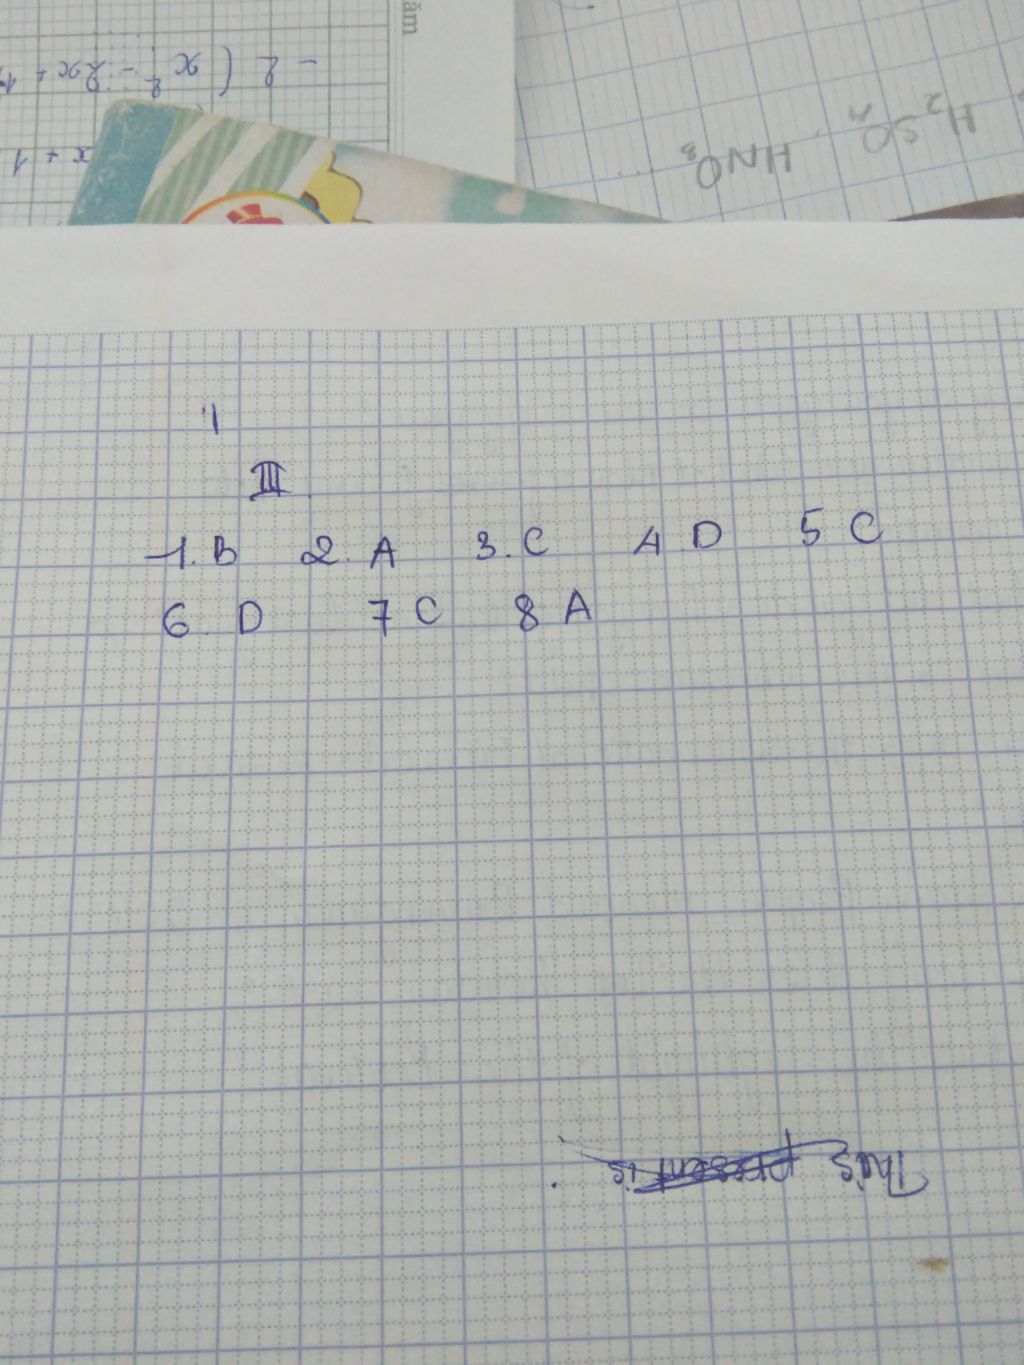 ăm
- 2 ( x² - 2x + 1
x + 1
H₂SO₄
HNO₃ ...
1
III
1. B 2. A 3. C 4 D 5 C
6. D 7 C 8 A
This present is